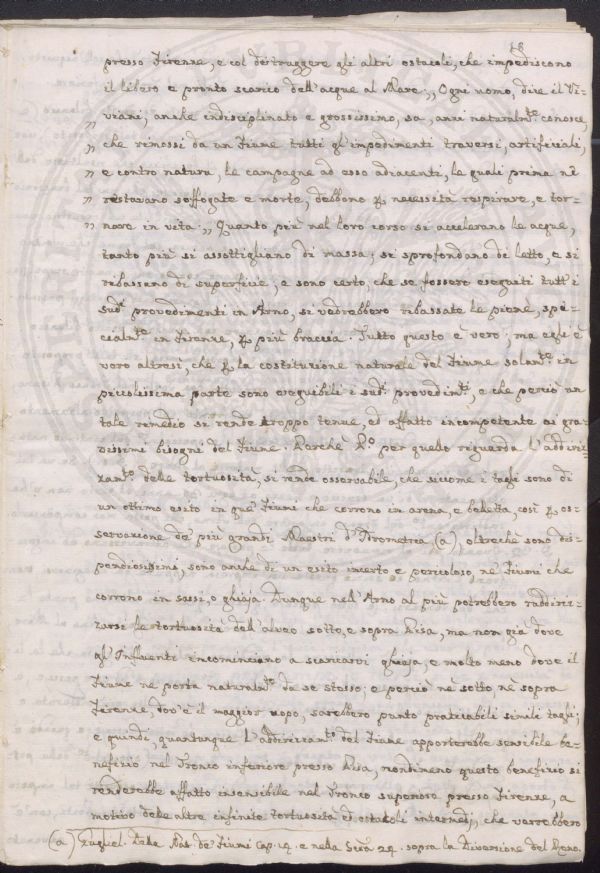 18
presso Firenze, e col distruggere gli altri ostacoli, che impediscono
il libero e pronto scarico dell'acque al Mare. „ Ogni uomo, dice il Vi-
„ viani, anche indisciplinato e grossissimo, sa, anzi naturalm.te conosce,
„ che rimossi da un Fiume tutti gl'impedimenti traversi, artificiali,
„ e contro natura, le campagne ad esso adiacenti, le quali prima ne
„ restavano soffogate e morte, debbono p necessità respirare, e tor-
„ nare in vita „ Quanto più nel loro corso si accelerano le acque,
tanto più si assottigliano di massa; si sprofondano di letto, e si
ribassano di superficie, e sono certo, che se fossero eseguiti tutt'i
sud.i provedimenti in Arno, si vedrebbero ribassate le piene, spe-
cialm.te in Firenze, p più braccia. Tutto questo è vero; ma egli è
vero altresì, che p la costituzione naturale del Fiume solam.te in
piccolissima parte sono eseguibili i sud.i provedim.ti, e che perciò un
tale rimedio si rende troppo tenue, ed affatto incompetente ai gra-
vissimi bisogni del Fiume. Perchè P.o per quello riguarda l'addiriz-
zam.to delle tortuosità, si rende osservabile, che siccome i tagli sono di
un ottimo esito in que' Fiumi che corrono in arena, e belletta, così p os-
servazione de' più grandi Maestri d'Idrometria (a), oltreché sono dis-
pendiosissimi, sono anche di un esito incerto e pericoloso, ne' Fiumi che
corrono in sassi, o ghiaja. Dunque nell'Arno al più potrebbero raddiriz-
zarsi le tortuosità dell'alveo sotto, e sopra Pisa, ma non già dove
gl'Influenti incominciano a scaricarvi ghiaja, e molto meno dove il
Fiume ne porta naturalm.te da se stesso; e perciò nè sotto, nè sopra
Firenze, dov'è il maggior uopo, sarebbero punto praticabili simili tagli;
e quindi, quantunque l'addirizzam.to del Fiume apporterebbe sensibile be-
neficio nel Tronco inferiore presso Pisa, nondimeno questo beneficio si
renderebbe affatto insensibile nel Tronco superiore presso Firenze, a
motivo delle altre infinite tortuosità ed ostacoli intermedj, che verrebbero
(a) Guglielm. Della Nat. de' Fiumi Cap. 14. e nella sopra la Diversione del Reno.